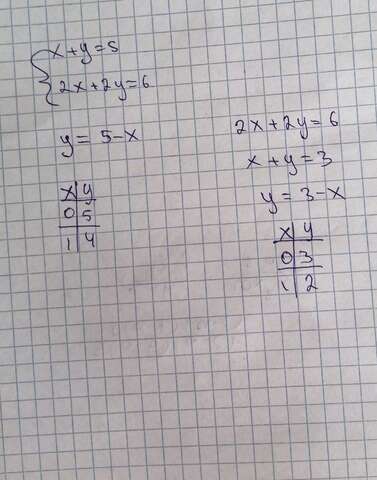 x+y=5
2x+2y=6
y=5-x
x y
0 5
1 4
2x+2y=6
x+y=3
y=3-x
x y
0 3
1 2